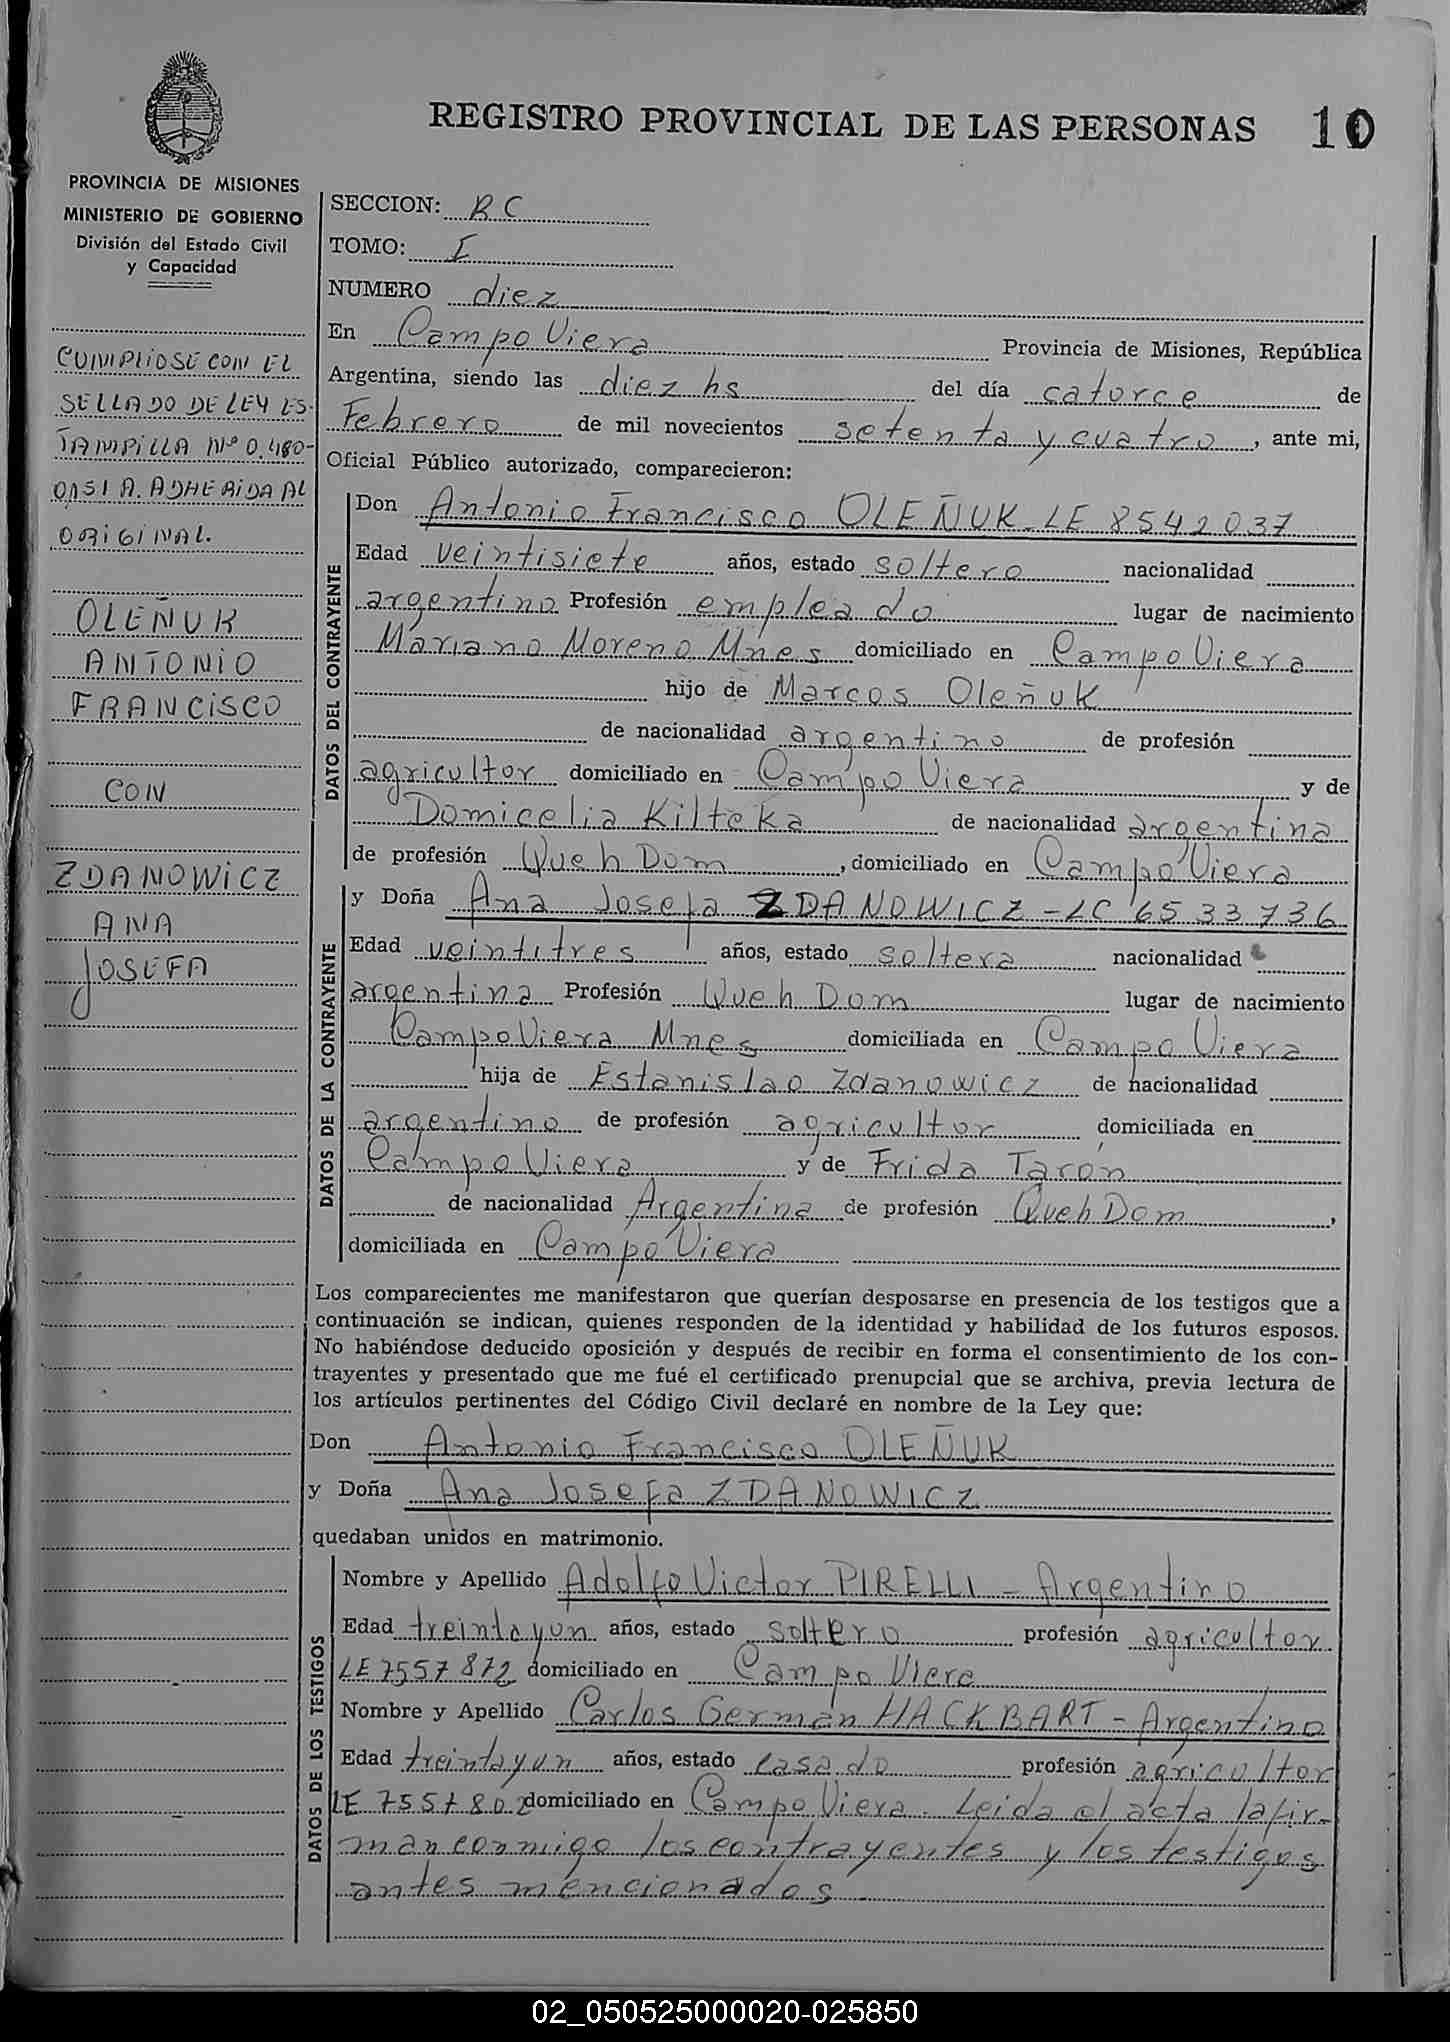 REGISTRO PROVINCIAL DE LAS PERSONAS 10
PROVINCIA DE MISIONES
MINISTERIO DE GOBIERNO
División del Estado Civil
y Capacidad
CUMPLIOSE CON EL
SELLADO DE LEY ES-
TAMPILLA Nº 0.480-
ADHERIDA AL
ORIGINAL.
OLEÑUK
ANTONIO
FRANCISCO
CON
ZDANOWICZ
ANA
JOSEFA
SECCION: BC
TOMO: I
NUMERO diez
En Campo Viera Provincia de Misiones, República
Argentina, siendo las diez hs del día catorce de
Febrero de mil novecientos setenta y cuatro, ante mi,
Oficial Público autorizado, comparecieron:
DATOS DEL CONTRAYENTE
Don Antonio Francisco OLEÑUK-LE 8542037
Edad veintisiete años, estado soltero nacionalidad
argentino Profesión empleado lugar de nacimiento
Mariano Moreno Mnes domiciliado en Campo Viera
hijo de Marcos Oleñuk
de nacionalidad argentino de profesión
agricultor domiciliado en Campo Viera y de
Domicelia Kilteka de nacionalidad argentina
de profesión Queh Dom, domiciliado en Campo Viera
DATOS DE LA CONTRAYENTE
y Doña Ana Josefa ZDANOWICZ-LC 6533736
Edad veintitres años, estado soltera nacionalidad
argentina Profesión Queh Dom lugar de nacimiento
Campo Viera Mnes domiciliada en Campo Viera
hija de Estanislao Zdanowicz de nacionalidad
argentino de profesión agricultor domiciliada en
Campo Viera y de Frida Tarón
de nacionalidad Argentina de profesión Queh Dom,
domiciliada en Campo Viera
Los comparecientes me manifestaron que querían desposarse en presencia de los testigos que a
continuación se indican, quienes responden de la identidad y habilidad de los futuros esposos.
No habiéndose deducido oposición y después de recibir en forma el consentimiento de los con-
trayentes y presentado que me fué el certificado prenupcial que se archiva, previa lectura de
los artículos pertinentes del Código Civil declaré en nombre de la Ley que:
Don Antonio Francisco OLEÑUK
y Doña Ana Josefa ZDANOWICZ
quedaban unidos en matrimonio.
DATOS DE LOS TESTIGOS
Nombre y Apellido Adolfo Victor PIRELLI - Argentino
Edad treintayun años, estado soltero profesión agricultor
LE 7557872 domiciliado en Campo Viera
Nombre y Apellido Carlos Germán HACKBART - Argentino
Edad treintayun años, estado casado profesión agricultor
LE 7557802 domiciliado en Campo Viera. Leida el acta la fir-
man conmigo los contrayentes y los testigos
antes mencionados
02_050525000020-025850